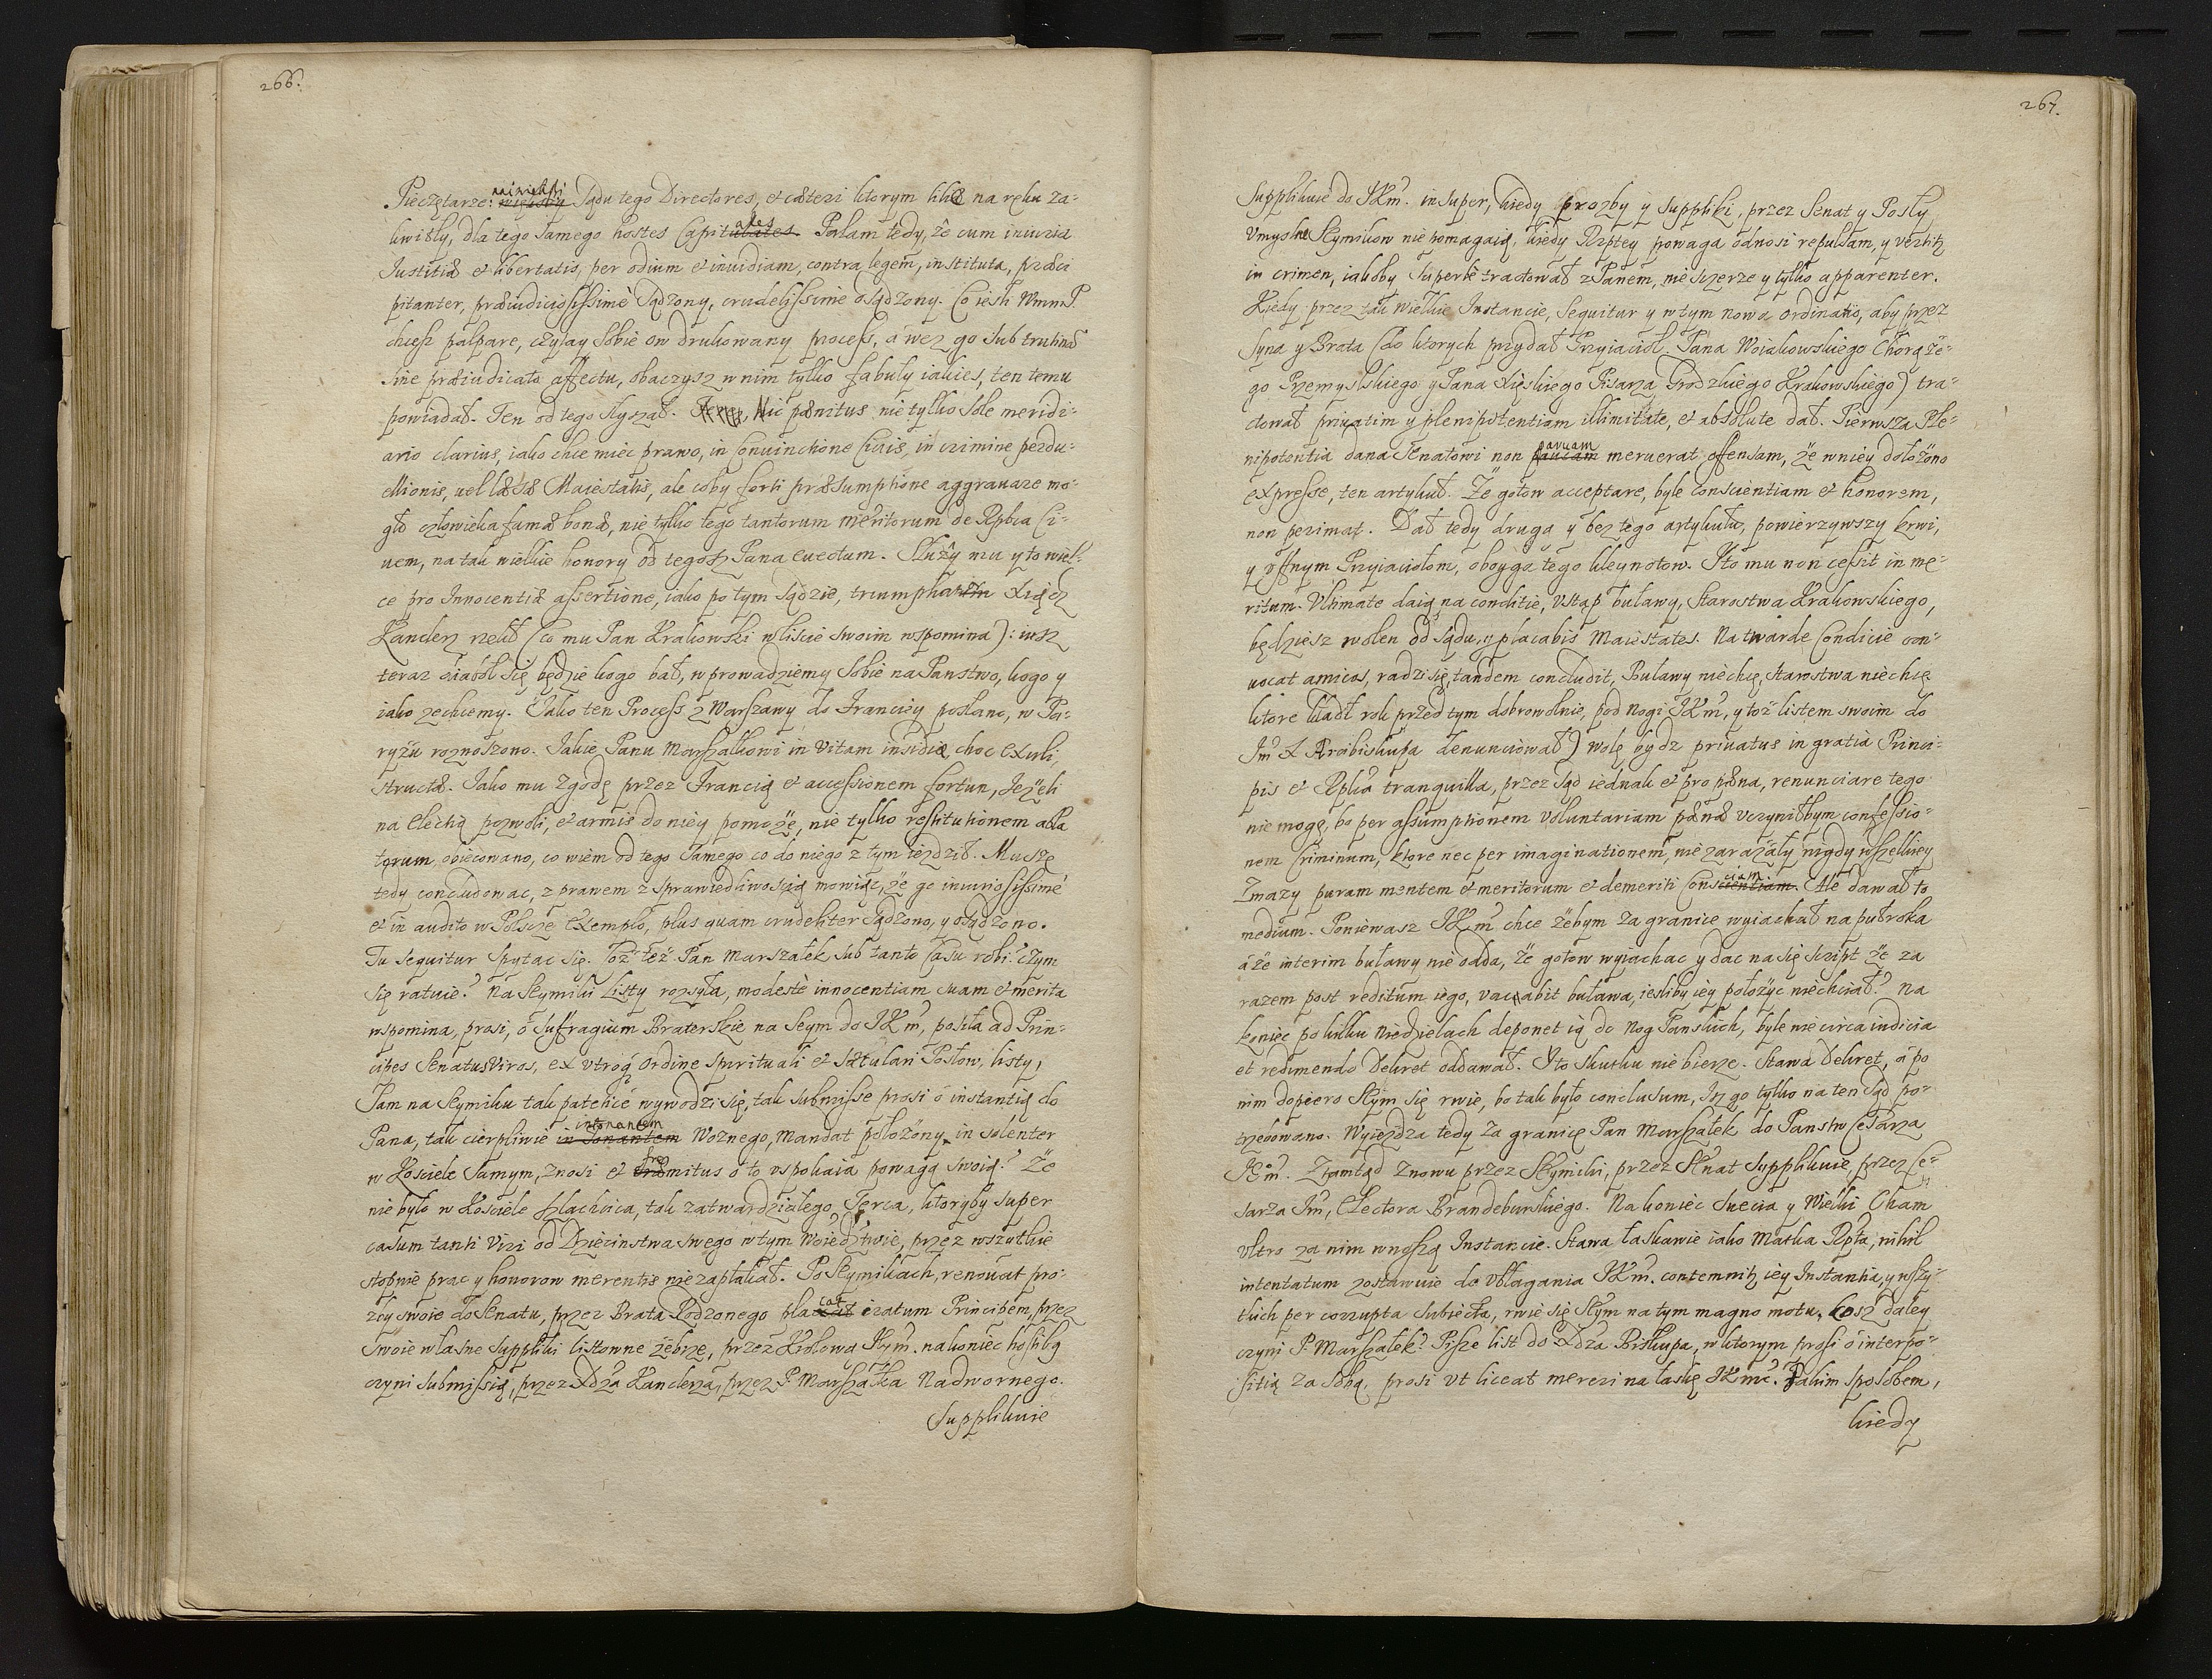 266.
Pieczętarze: Sądu tego Directores, et cæteri ktorym liliæ na ręku za-
kwitły, dla tego samego hostes Capitales. Palam tedy, że cum iniuria
Iustitiæ et libertatis, per odium et inuidiam, contra legem, instituta, præci
pitanter, præiudiciosissimè sądzony, crudelissimè osądzony. Co iesli WmmP.
chcesz palpare, czytay sobie on drukowany process, a wez go sub trutina
sine præiudicato affectu, obaczysz w nim tylko fabuły iakies, ten temu
powiadał. Ten od tego słyszał. Nic pœnitus nie tylko sole meridi-
ano clarius, iako chce miec prawo, in Conuinctione Ciuis, in crimine perdu-
ellionis, uel læsæ Maiestatis, ale coby forti præsumptione aggrauare mo-
gło człowieka famæ bonæ, nie tylko tego tantorum meritorum de Rpbca Ci-
uem, na tak wielkie honory od tegosz Pana euectum. Służy mu y to wiel-
ce pro Innocentiæ assertione, iako po tym sądzie, Xiądz
Kanclerz rzekł (co mu Pan Krakowski w liscie swoim wspomina): iusz
teraz diaboł się będzie kogo bał, wprowadziemy sobie na Panstwo, kogo y
iako zechcemy. Iako ten Process z Warszawy do Franciey posłano, w Pa-
ryżu roznoszono. Iakie Panu Marszałkowi in vitam insidiæ choc exuli,
structæ. Iako mu zgodę przez Francią et accessionem fortun, Ieżeli
na Elechę pozwoli, et armis do niey pomoże, nie tylko restitutionem abla
torum obiecowano, co wiem od tego samego co do niego z tym iezdził. Muszę
tedy concludowac, z prawem z sprawiedliwoscią mowiąc, że go iniuriosissimè
et in audito w Polsce Exemplo, plus quam crudeliter sądzono, y osądzono.
Tu sequitur spytac się. Toż też Pan Marszałek sub tanto Casu robi? czym
się ratuie? Na seymiki Listy rozsyła, modestè innocentiam suam et merita
wspomina, prosi, o suffragium Braterskie na Seym do JKm, posyła ad Prin-
cipes Senatus Viros, ex utroq ordine spirituali et sæculari Posłow, listy,
Sam na seymiku tak patenće wywodzi się, tak submisse prosi o instantią do
Pana, tak cierpliwie intonantem Woznego, Mandat położony in solenter
w Kosciele samym, znosi et fremitus o to uspokaia powagą swoią? Że
nie było w Kosciele szlachcica, tak zatwardziałego Serca, ktoryby super
casum tanti Viri od Dziecinstwa swego w tym Woiedztwie, przez wszytkie
stopnie prac y honorow merentis nie zapłakał. Po Seymikach, renouat pro-
zby swoie do Senatu, przez Brata Rodzonego placat iratum Principem, przez
swoie własne suppliki listowne żebrze, przez Krolową Jeym. nakoniec hostilq
czyni submissią, przez Xdza Kanclerza, przez P Marszałka Nadwornego.
Supplikuie
267.
Supplikuie do JKm. in super, kiedy prozby y suppliki, przez Senat y Posły
Umyslne Seymikow nie pomagaią, kiedy Rzptey powaga odnosi repulsam, y vertitz
in crimen, iakoby superbè tractował z Panem, nie szczerze y tylko apparenter.
Kiedy przez tak wielkie Instancie, sequitur y w tym nowa ordinatio, aby przez
Syna y Brata (do ktorych przydał Przyiacioł, Pana Woiakowskiego Chorąże-
go Przemyslskiego y Pana Xięskiego Pisarza Grodzkiego Krakowskiego) tra-
ctował priuatim y plenipotentiam illimitate, et absolute dał. Pierwsza Ple-
nipotentia dana Senatowi non paruam meruerat offensam, że w niey dołożono
expresse, ten artykuł. Że gotow acceptare, byle conscientiam et honorem,
non perimat. Dał tedy drugą y bez tego artykułu, powierzywszy krwi,
y uffnym Przyiaciołom, oboyga tego kleynotow. Y to mu non cessit in me-
ritum. Ultimate daią na conditie, Ustąp buławy, Starostwa Krakowskiego,
będziesz wolen od sądu, y placabis Maiestates. Na twarde Condicie con-
uocat amicos, radzi się, tandem concludit, Buławy niechcę, Starostwa niechcę
ktore kładł rok przed tym dobrowolnie, pod nogi JKm, y toż listem swoim do
Jm X Arcibiskupa denunciował) wolę bydz priuatus in gratia Princi-
pis et Rplca tranquilla, przez sąd iednak et pro pœna, renunciare tego
nie mogę, bo per assumptionem voluntariam pœnæ uczyniłbym confessio-
nem Criminum, ktore nec per imaginationem, nie zarażały nigdy wszelkiey
Zmazy puram mentem et meritorum et demeriti Consciam. Ale dawał to
medium. Poniewasz JKm chce żebym za granice wyiachał na puł roka
á że interim buławy nie odda, że gotow wyiachac y dac na się script że za
razem post reditum iego, vacabit buława, iesliby iey położyc niechciał? Na
koniec po kilku Niedzielach deponet ią do Nog Panskich, byle nie circa iudicia
et redimendo Dekret oddawał. Y to skutku nie bierze. Stawa Dekret, á po
nim dopiero Seym się rwie, bo tak było conclusum, Iż go tylko na ten sąd po-
trzebowano. Wyiezdza tedy za granicę Pan Marszałek do Panstw Cesarza
Jm. Ztamtąd znowu przez Seymiki, przez Senat Supplikuie, przez Ce-
sarza Jm, Electora Brandeburskiego. Na koniec Suecia y Wielki Cham
ultro za nim wnoszą Instancie. Stawa łaskawie iako Matka Rzpta, nihil
intentatum zostawuie do ubłagania JKm. contemnitz iey Instantia, y wszy-
tkich per corrupta subiecta, rwie się Seym na tym magno motu. Cosz daley
czyni P. Marszałek? Pisze list do Xdza Biskupa, w ktorym prosi o interpo-
sitią za sobą, prosi ut liceat mereri na łaskę JKmc. Takim sposobem,
kiedy